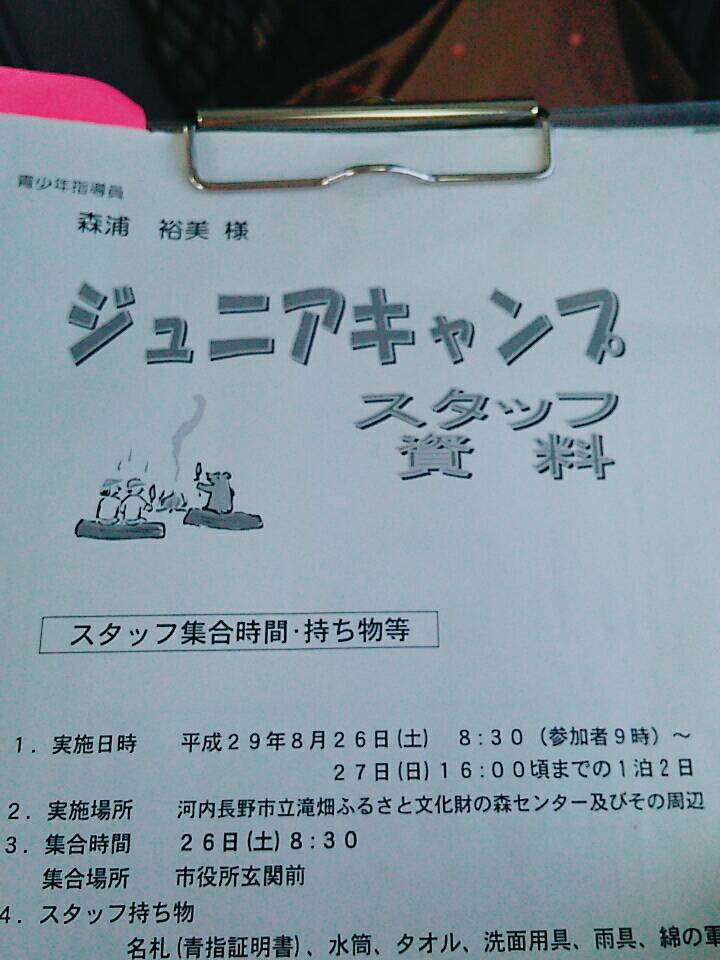 青少年指導員
森浦 裕美 様
ジュニアキャンプ
スタッフ
資料
スタッフ集合時間・持ち物等
1. 実施日時 平成29年8月26日(土) 8:30 (参加者9時)～
27日(日)16:00頃までの1泊2日
2. 実施場所 河内長野市立滝畑ふるさと文化財の森センター及びその周辺
3. 集合時間 26日(土)8:30
集合場所 市役所玄関前
4. スタッフ持ち物
名札(青指証明書)、水筒、タオル、洗面用具、雨具、綿の軍